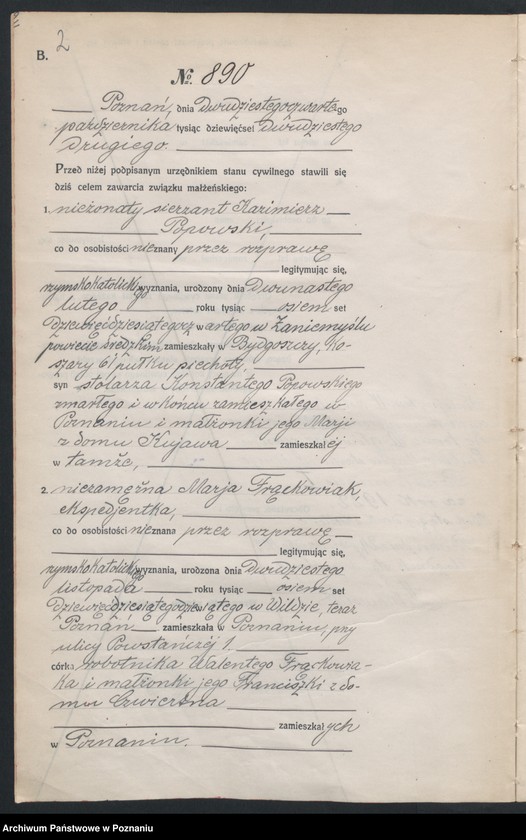 2
B.
№ 890
Poznań, dnia Dwudziestegoczwartego
października tysiąc dziewięćset dwudziestego
drugiego.
Przed niżej podpisanym urzędnikiem stanu cywilnego stawili się
dziś celem zawarcia związku małżeńskiego:
1. nieżonaty sierżant Kazimierz
Popowski,
co do osobistości nieznany przez rozprawę
legitymując się,
rzymskokatolickiego wyznania, urodzony dnia Dwunastego
lutego roku tysiąc osiem set
dziewięćdziesiątegoczwartego w Zaniemyślu
powiecie średzkim zamieszkały w Bydgoszczy, ko-
szary 61 pułku piechoty,
syn stolarza Konstantego Popowskiego
zmarłego i w końcu zamieszkałego w
Poznaniu i małżonki jego Marji
z domu Kujawa zamieszkałej
w tamże,
2. niezamężna Marja Frąckowiak,
ekspedjentka,
co do osobistości nieznana przez rozprawę
legitymując się,
rzymskokatolickiego wyznania, urodzona dnia Dwudziestego
listopada roku tysiąc osiem set
dziewięćdziesiątego w Wildzie, teraz
Poznań zamieszkała w Poznaniu, przy
ulicy Powstańczej 1.
córka robotnika Walentego Frąckowia-
ka i małżonki jego Franciszki z do-
mu
zamieszkałych
w Poznaniu.
Archiwum Państwowe w Poznaniu